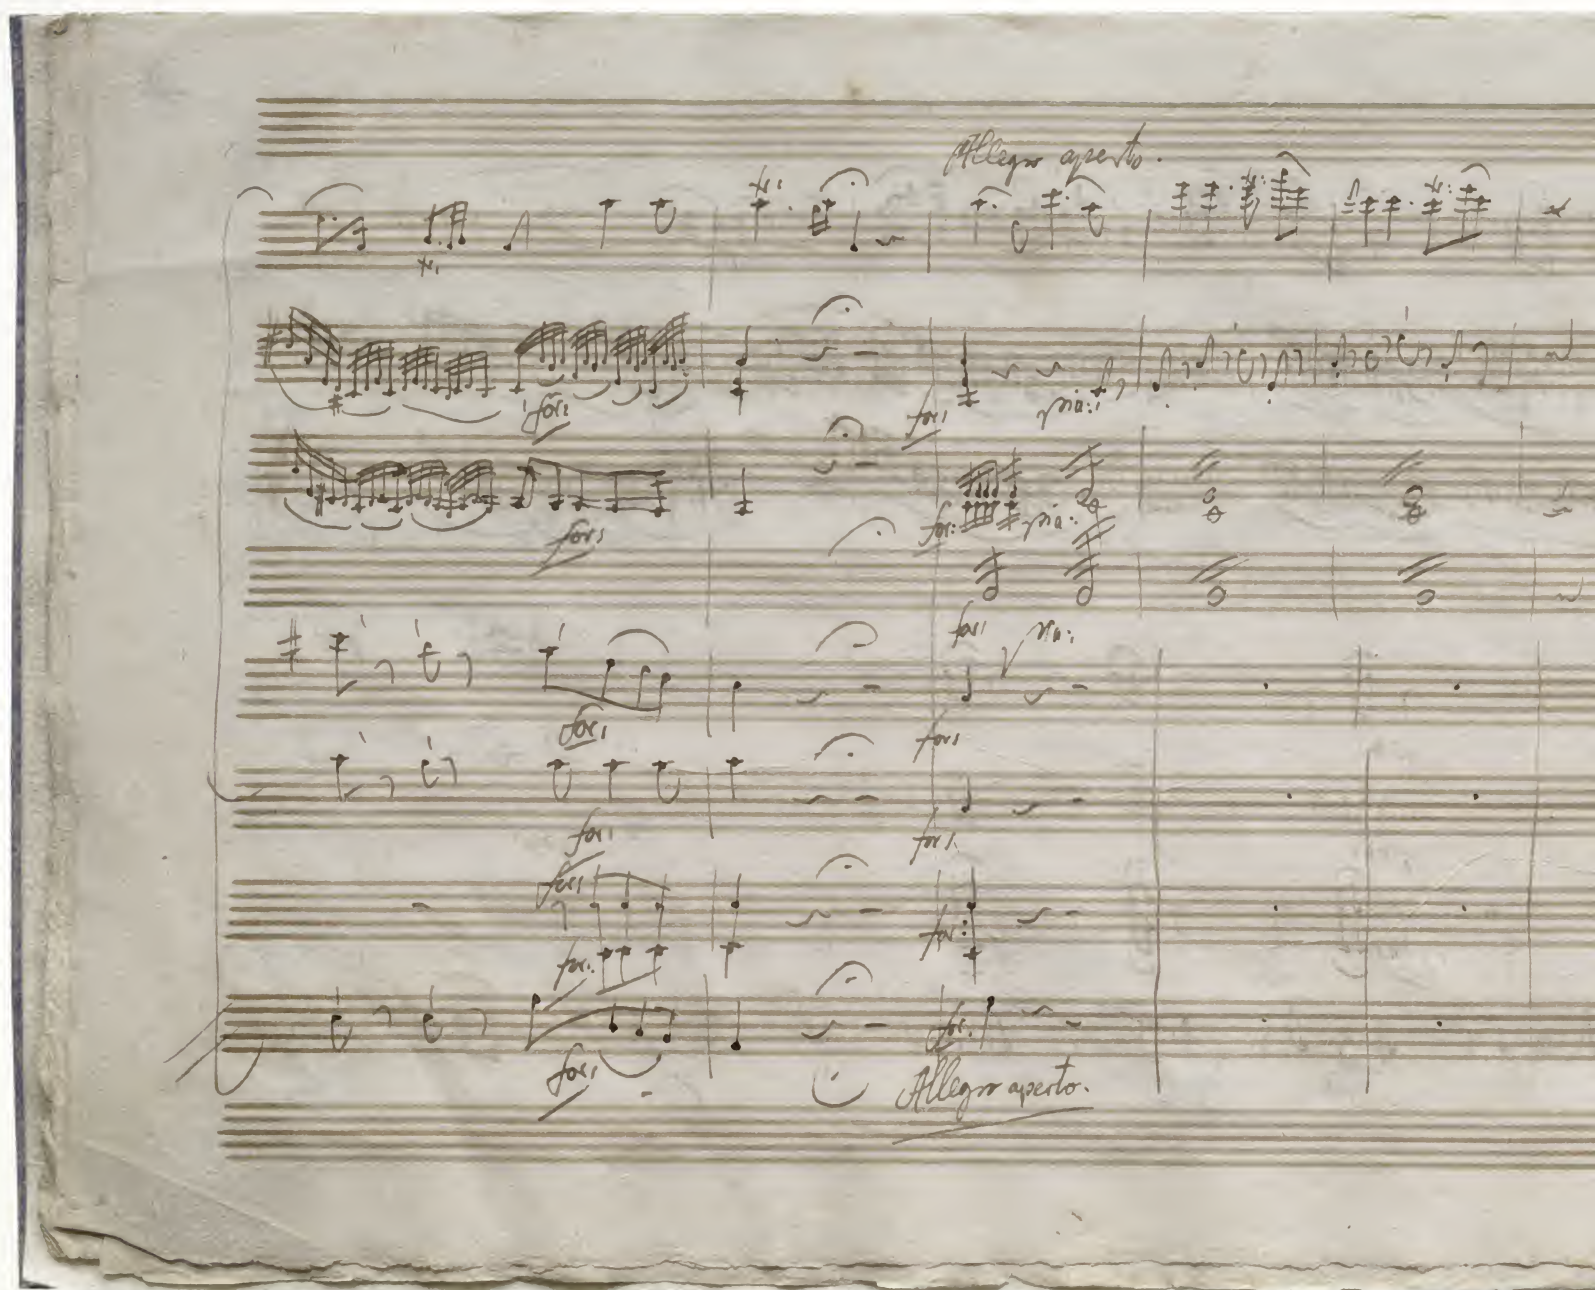 Allegro aperto.
tr:
tr:
tr:
tr:
for:
for:
pia:
for:
for:
pia:
for:
pia:
for:
for:
for:
for:
for:
for:
for:
for:
for:
Allegro aperto.